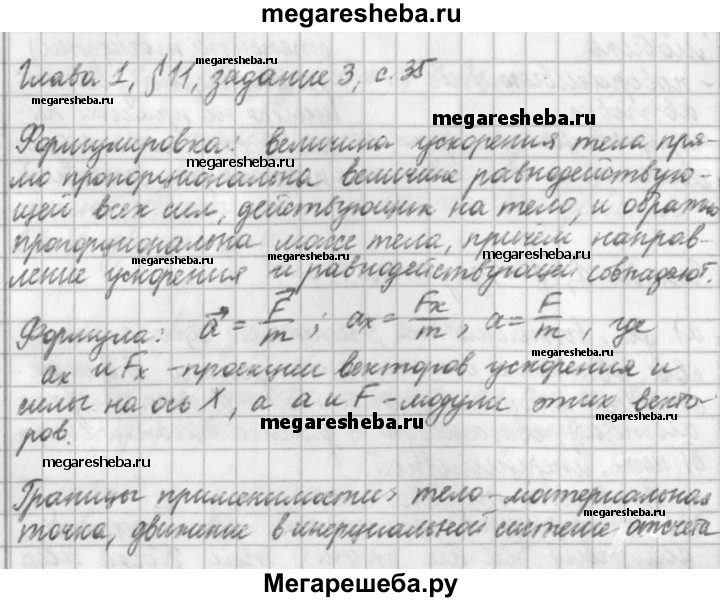 megaresheba.ru
Глава 1, § 11, задание 3, с. 35
megaresheba.ru
megaresheba.ru
megaresheba.ru
Формулировка: величина ускорения тела пря-
мо пропорциональна величине равнодействую-
megaresheba.ru
megaresheba.ru
щей всех сил, действующих на тело, и обратно
пропорциональна массе тела, причем направ-
megaresheba.ru
ление ускорения и равнодействующей совпадают.
megaresheba.ru
Формула: a⃗ = F⃗/m ; ax = Fx/m , a = F/m , где
megaresheba.ru
ax и Fx - проекции векторов ускорения и
силы на ось X, а a и F - модули этих векто-
megaresheba.ru
megaresheba.ru
ров.
megaresheba.ru
Границы применимости: тело - материальная
megaresheba.ru
точка, движение в инерциальной системе отсчета
Мегарешеба.ру